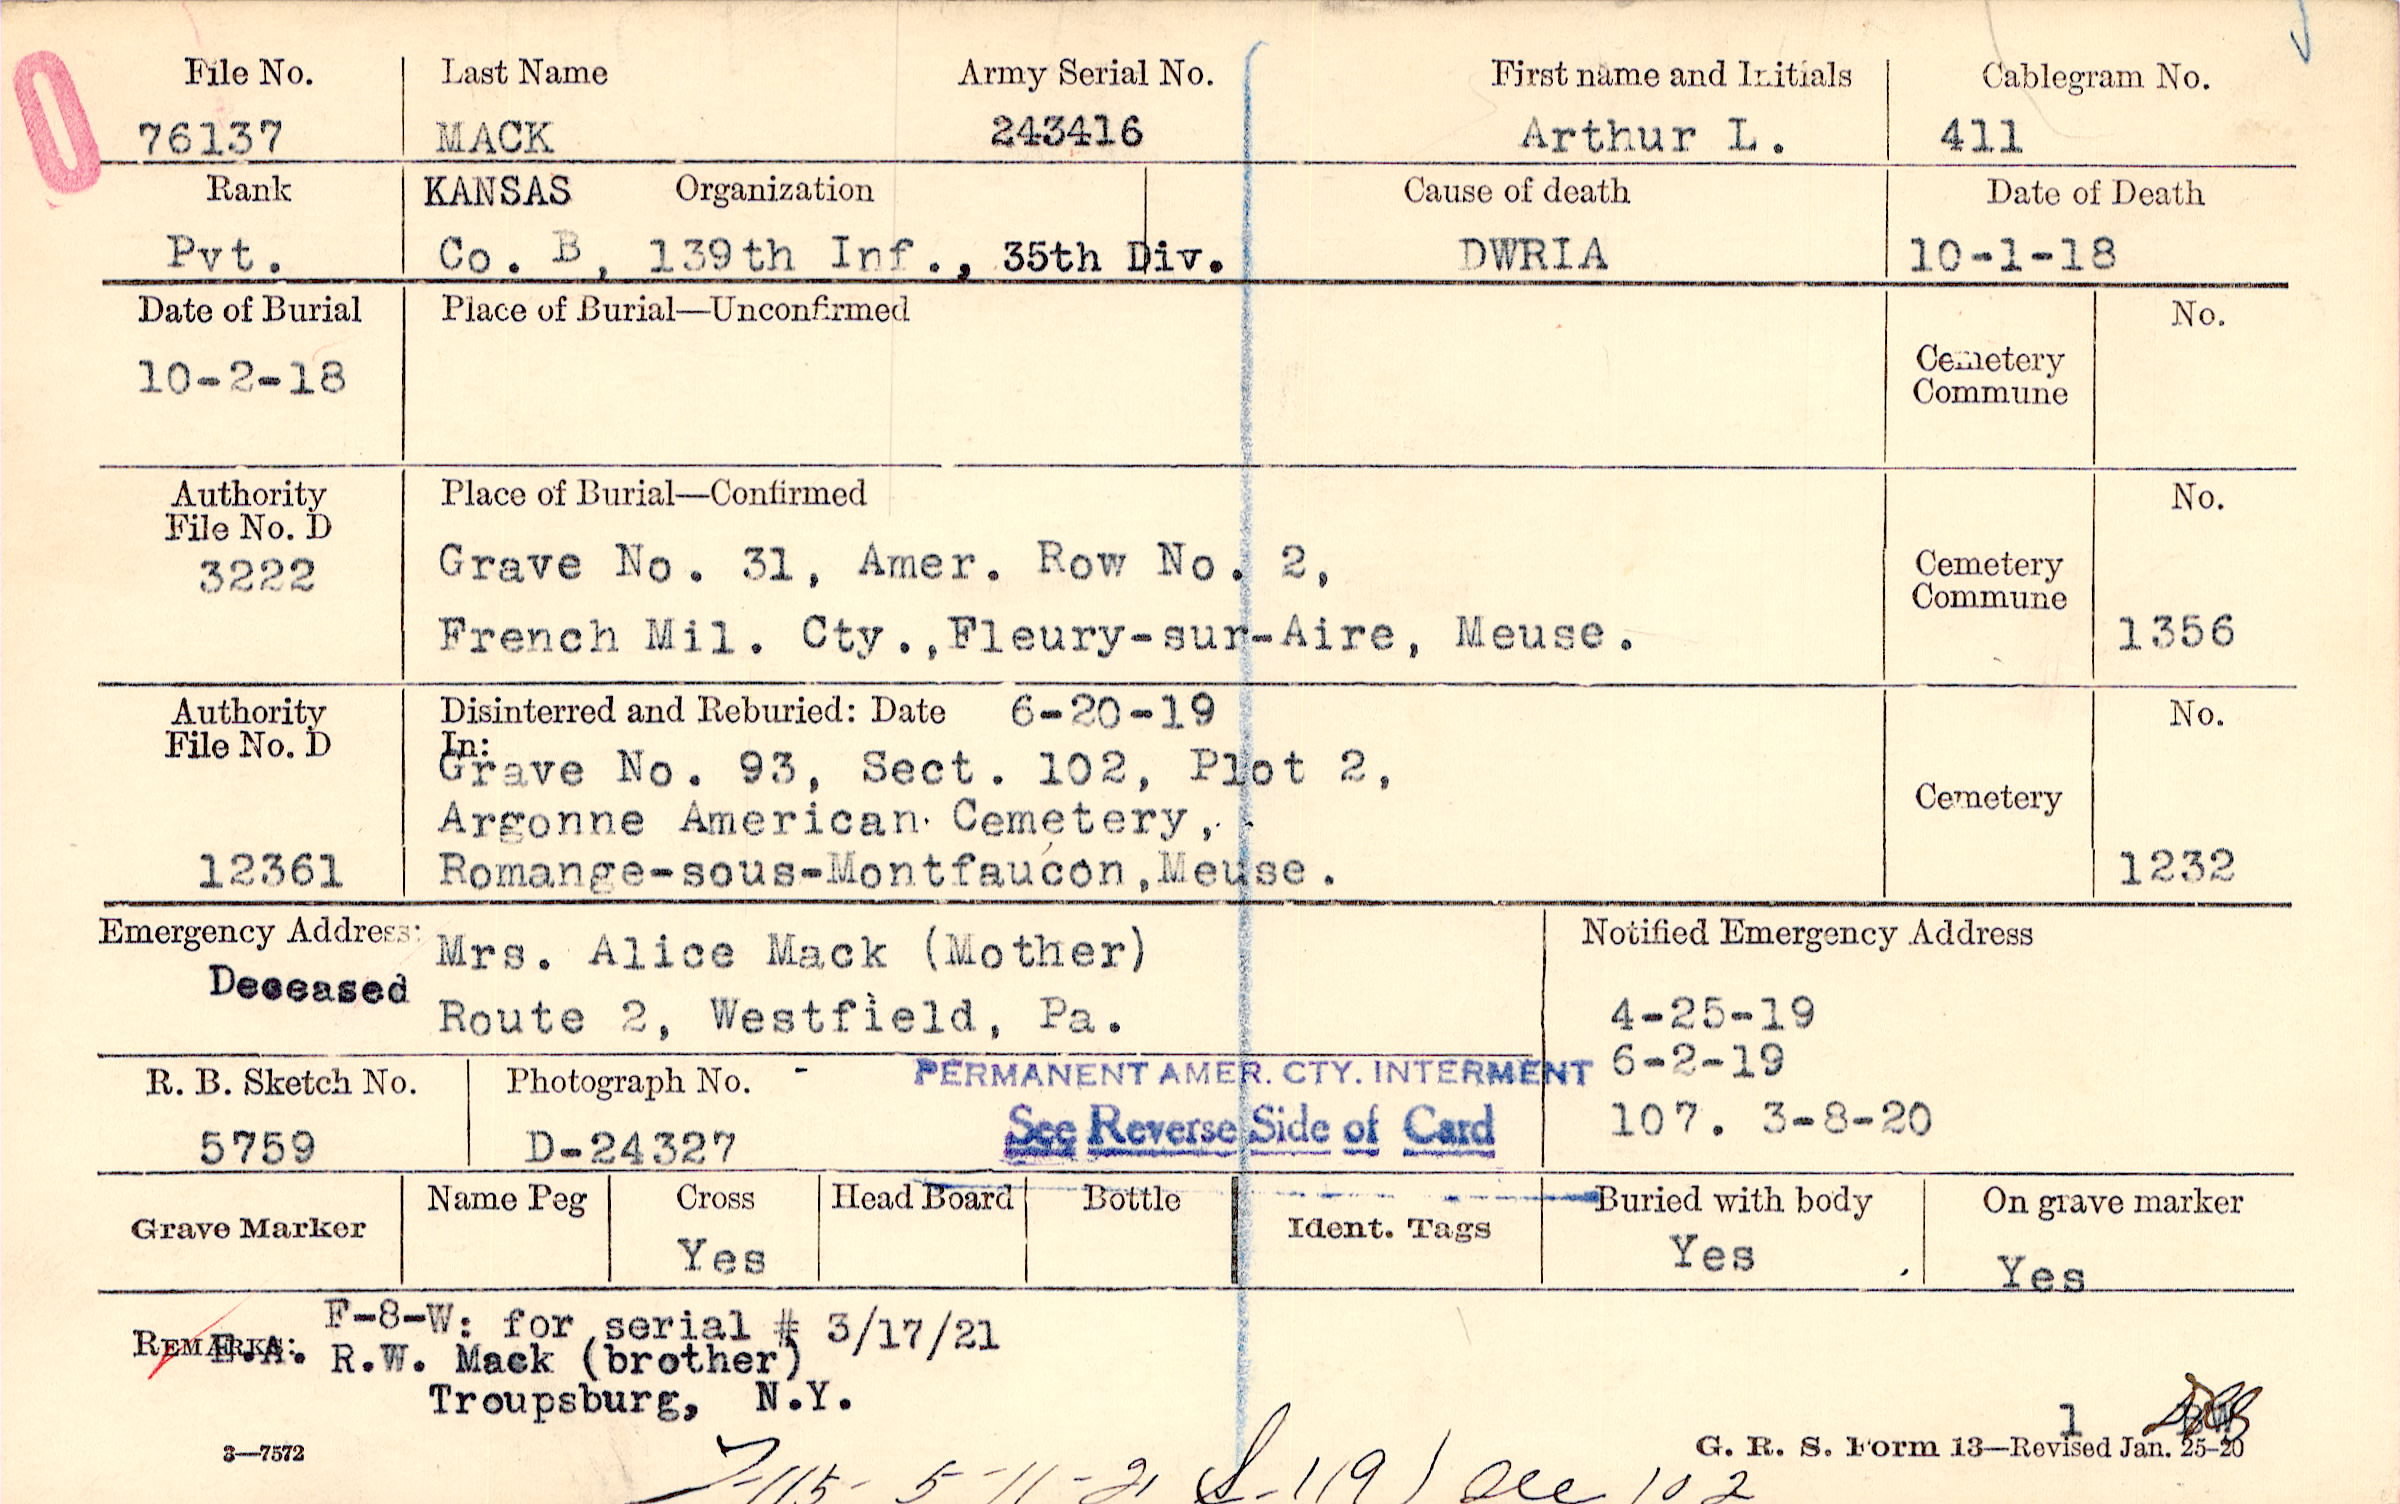 File No. Last Name Army Serial No. First name and Initials Cablegram No.
76137 MACK 243416 Arthur L. 411
Rank KANSAS Organization Cause of death Date of Death
Pvt. Co. B, 139th Inf., 35th Div. DWRIA 10-1-18
Date of Burial Place of Burial—Unconfirmed No.
10-2-18 Cemetery
Commune
Authority Place of Burial—Confirmed No.
File No. D
3222 Grave No. 31, Amer. Row No. 2, Cemetery
Commune
French Mil. Cty.,Fleury-sur-Aire, Meuse. 1356
Authority Disinterred and Reburied: Date 6-20-19 No.
File No. D In:
Grave No. 93, Sect. 102, Plot 2,
Cemetery
Argonne American Cemetery,
12361 Romange-sous-Montfaucon,Meuse. 1232
Emergency Address: Mrs. Alice Mack (Mother) Notified Emergency Address
Deceased
Route 2, Westfield, Pa. 4-25-19
6-2-19
PERMANENT AMER. CTY. INTERMENT
R. B. Sketch No. Photograph No.
See Reverse Side of Card 107. 3-8-20
5759 D-24327
Grave Marker Name Peg Cross Head Board Bottle Ident. Tags Buried with body On grave marker
Yes Yes Yes
F-8-W: for serial # 3/17/21
REMARKS: E.A. R.W. Mack (brother)
Troupsburg, N.Y.
1
3—7572 G. R. S. Form 13—Revised Jan. 25-20
5-11-21